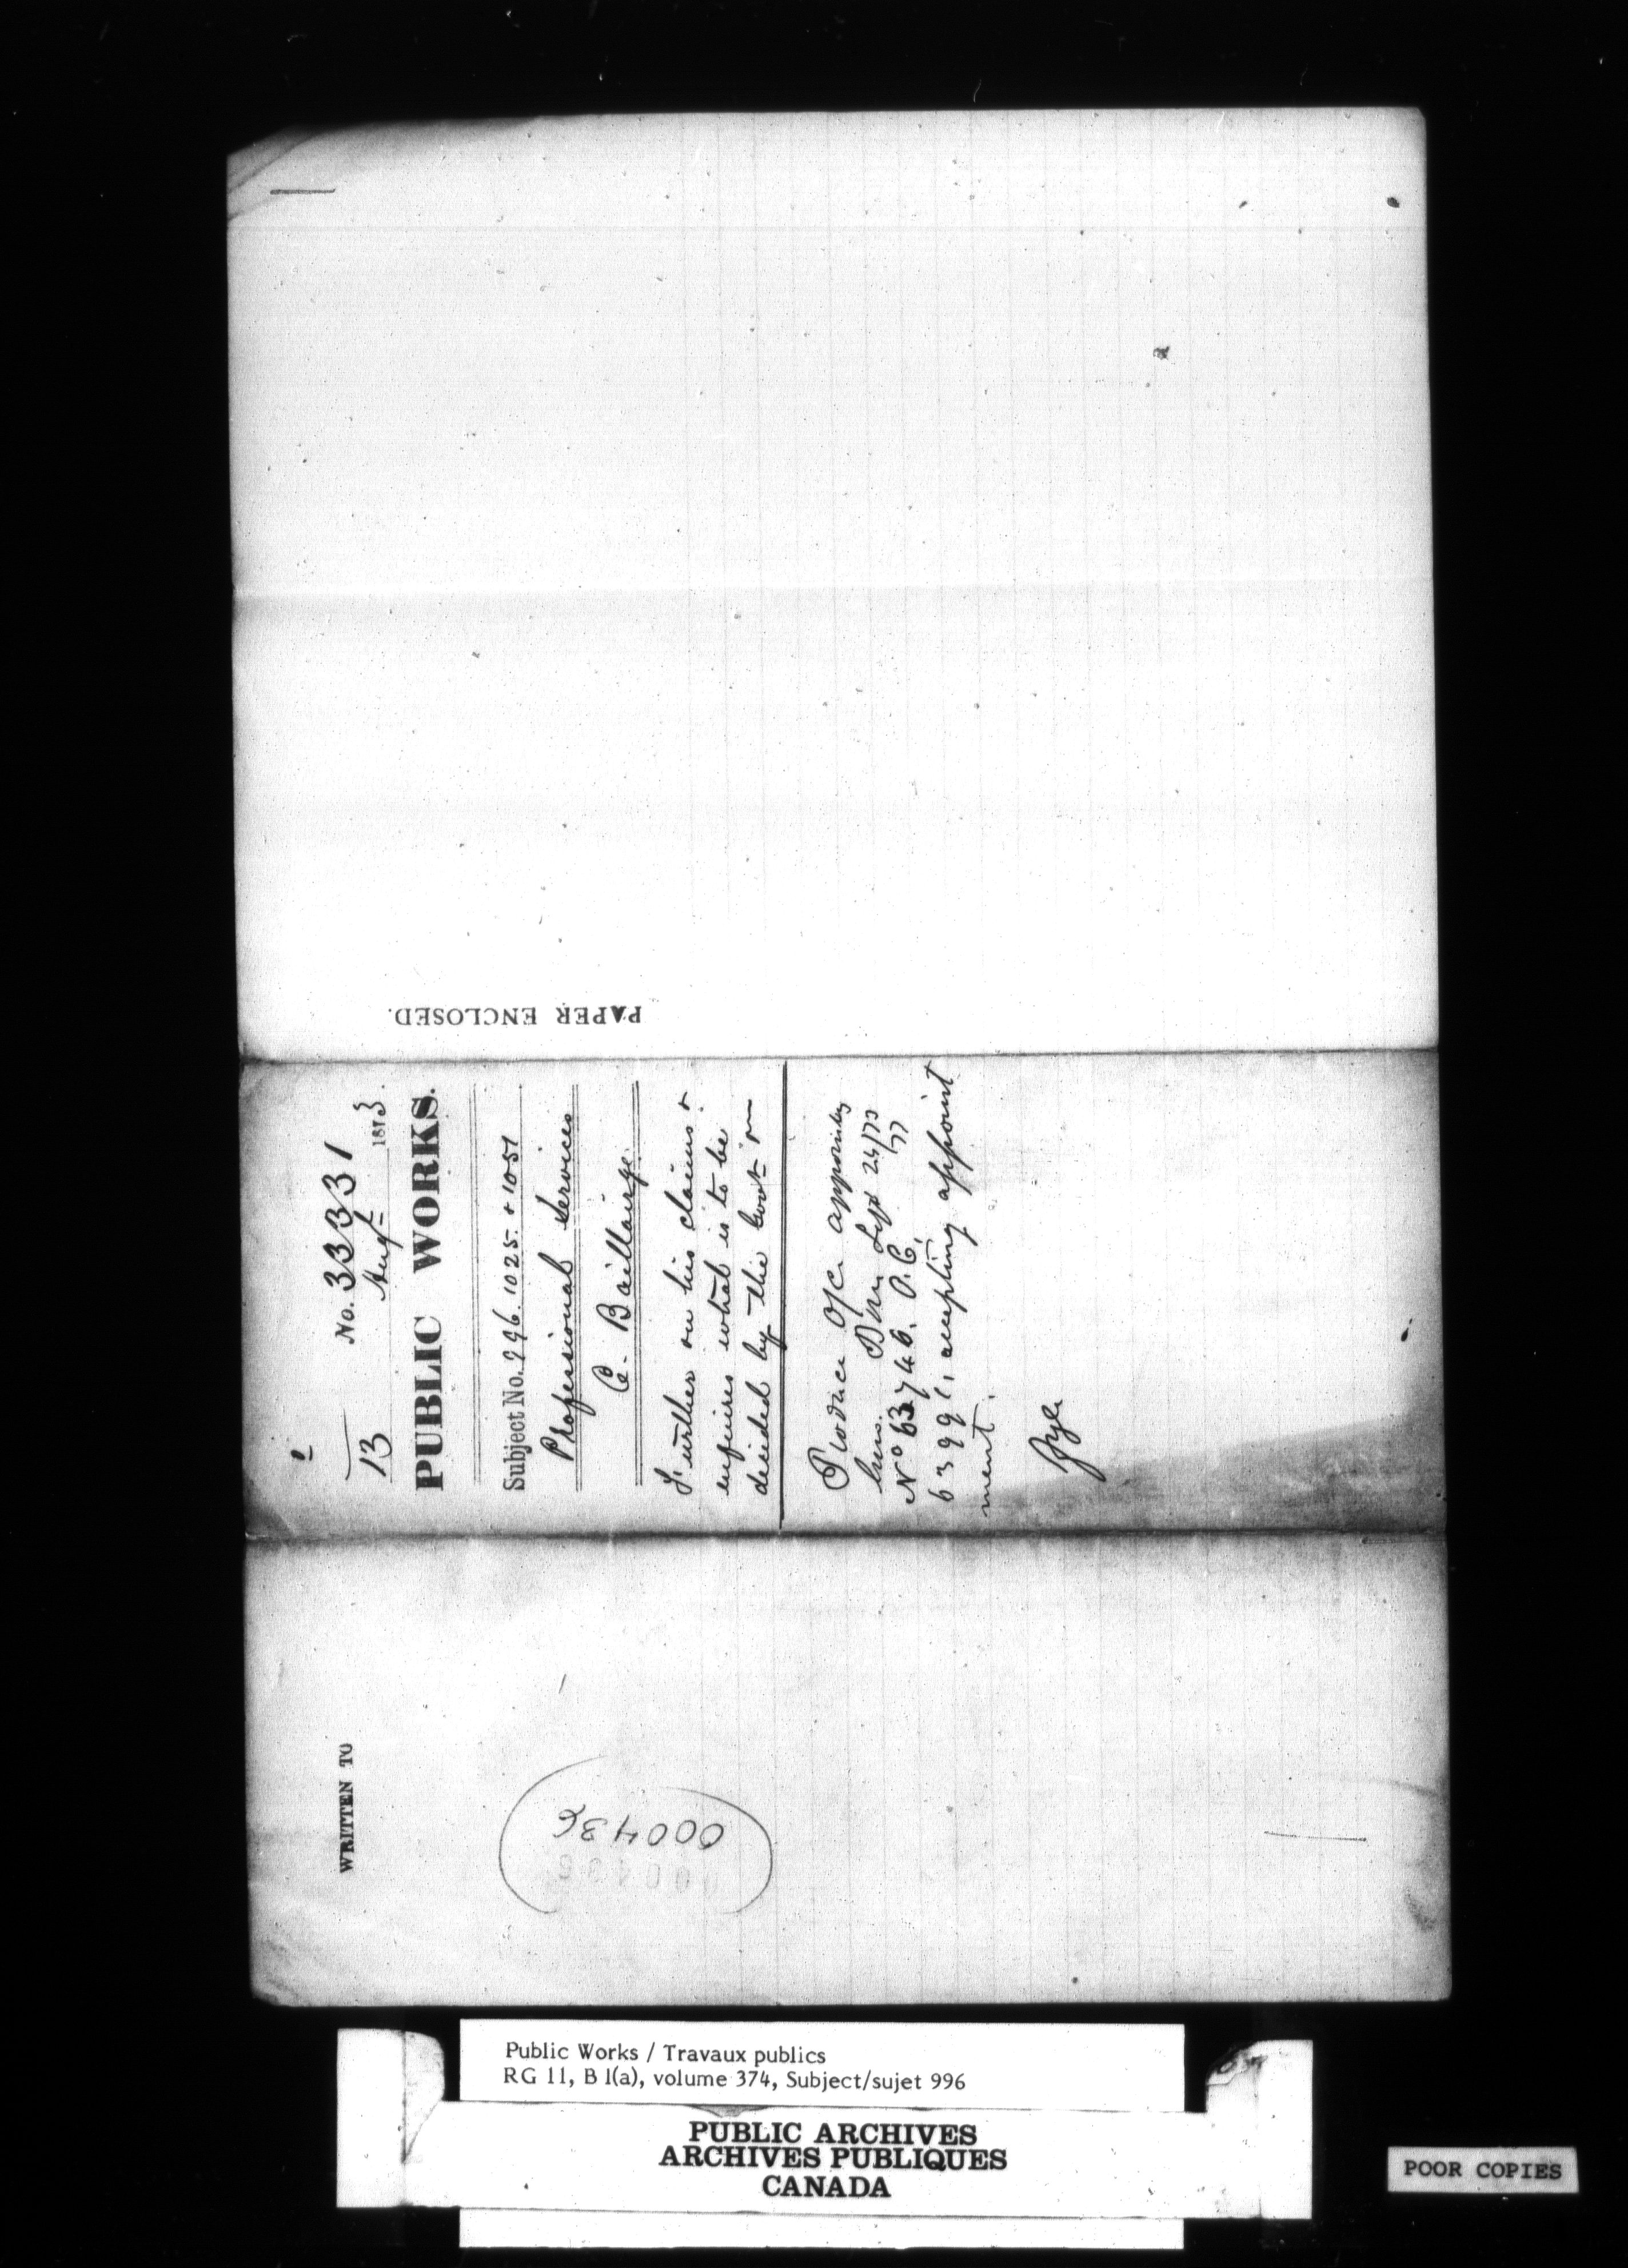 PAPER ENCLOSED.
No. 33331
13 Augt 1873.
PUBLIC WORKS.
Subject No. 996. 1025 & 1051
Professional Services
C. Baillairgé.
Further on his claims &
enquires what is to be
decided by the Govt on
Produce O/C appointing
him. Sept 24/73
No 63746. O.C.
63991, accepting appoint
ment.
WRITTEN TO
000436
000436
Public Works / Travaux publics
RG 11, B 1(a), volume 374, Subject/sujet 996
PUBLIC ARCHIVES
ARCHIVES PUBLIQUES
CANADA
POOR COPIES